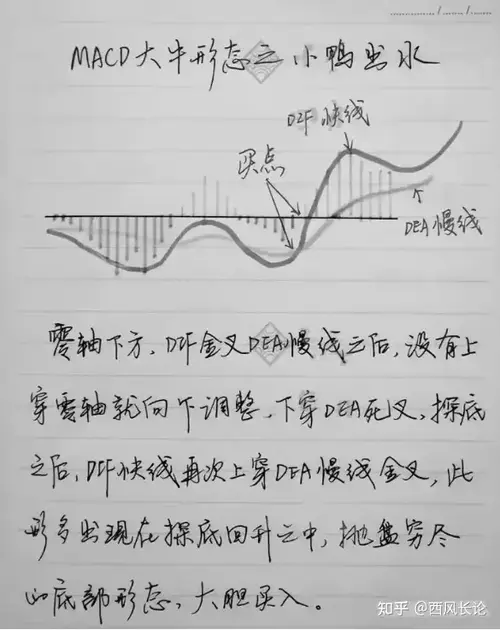 MACD大牛形态之小鸭出水
DIF快线
买点
DEA慢线
零轴下方,DIF金叉DEA慢线之后,没有上
穿零轴就向下调整,下穿DEA死叉,探底
之后,DIF快线再次上穿DEA慢线金叉,此
形多出现在探底回升之中,抛盘穷尽
的底部形态,大胆买入。
知乎 @西风长论